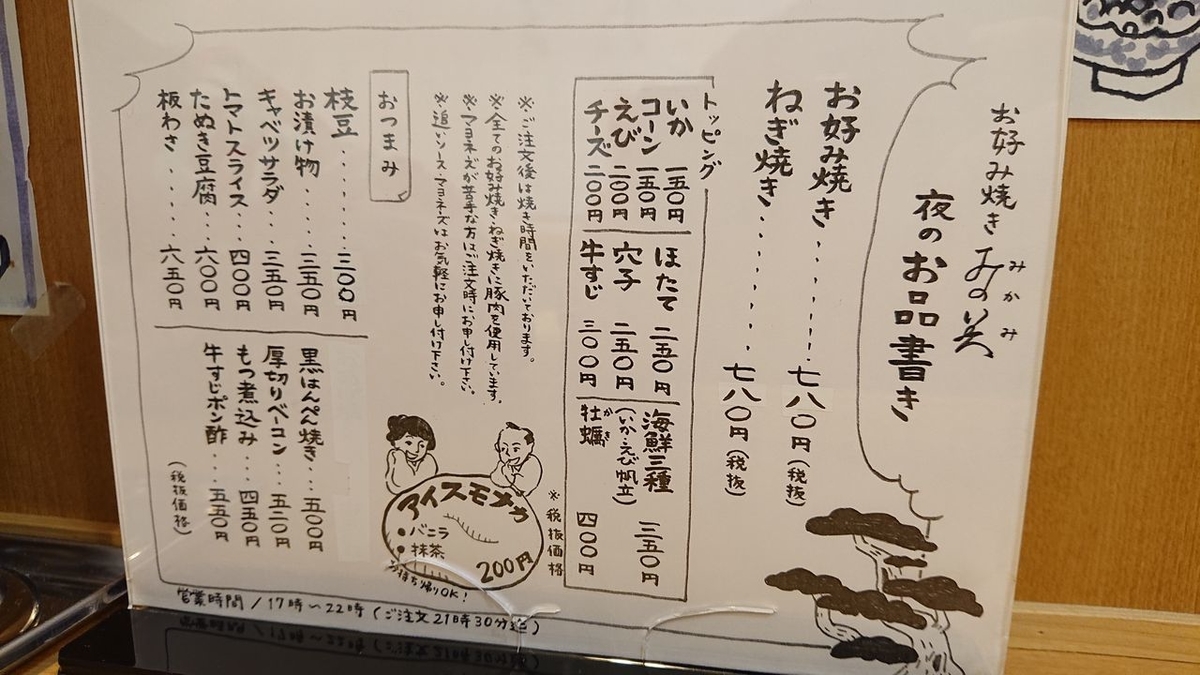 お好み焼き みの美
みかみ
夜のお品書き
お好み焼き・・・・・・・・七八〇円(税抜)
ねぎ焼き・・・・・・・・七八〇円(税抜)
トッピング
いか 一五〇円
コーン 一五〇円
えび 二〇〇円
チーズ 二〇〇円
ほたて 二五〇円
穴子 二五〇円
牛すじ 三〇〇円
海鮮三種
(いか・えび・帆立) 三五〇円
牡蠣 四〇〇円
かき
※税抜価格
※ご注文後は焼き時間をいただいております。
※全てのお好み焼き・ねぎ焼きに豚肉を使用しています。
※マヨネーズが苦手な方はご注文時にお申し付け下さい。
※追いソース・マヨネーズはお気軽にお申し付け下さい。
アイスモナカ
・バニラ
・抹茶
200円
お持ち帰りOK!
おつまみ
枝豆・・・・・・・三〇〇円
お漬け物・・・・三五〇円
キャベツサラダ・・・三五〇円
トマトスライス・・・四〇〇円
たぬき豆腐・・・六〇〇円
板わさ・・・・・六五〇円
黒はんぺん焼き・・・五〇〇円
厚切りベーコン・・・五五〇円
もつ煮込み・・・四五〇円
牛すじポン酢・・・五五〇円
(税抜価格)
営業時間/17時〜22時(ご注文21時30分迄)